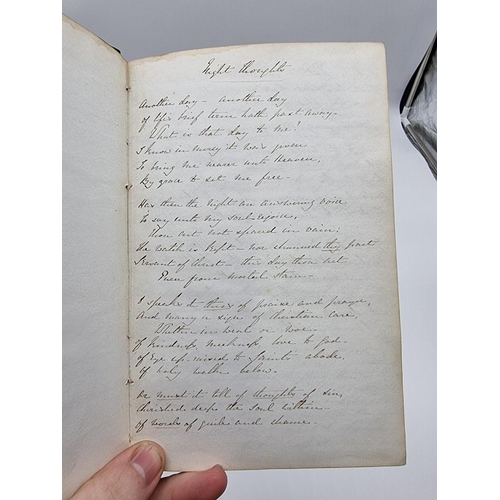 Night thoughts
Another day - another day
Of life's brief term hath past away.
What is that day to me?
I know in mercy it was given
To bring me nearer unto Heaven,
By grace to set me free -
Has then the night an answering voice
To say unto my soul - rejoice,
Thou art not spared in vain;
The watch is kept - nor shunned thy past
Servant of Christ - this day thou art
Pure from mortal stain -
I speaks it thus of praise and prayer,
And many a sign of Christian care,
Within in weal or woe -
Of kindness, meekness, love to God -
Of Eye up-raised to Saints abode,
Of holy walk below.
Or must it tell of thoughts of sin,
Cherished deep the soul within -
Of words of guile and